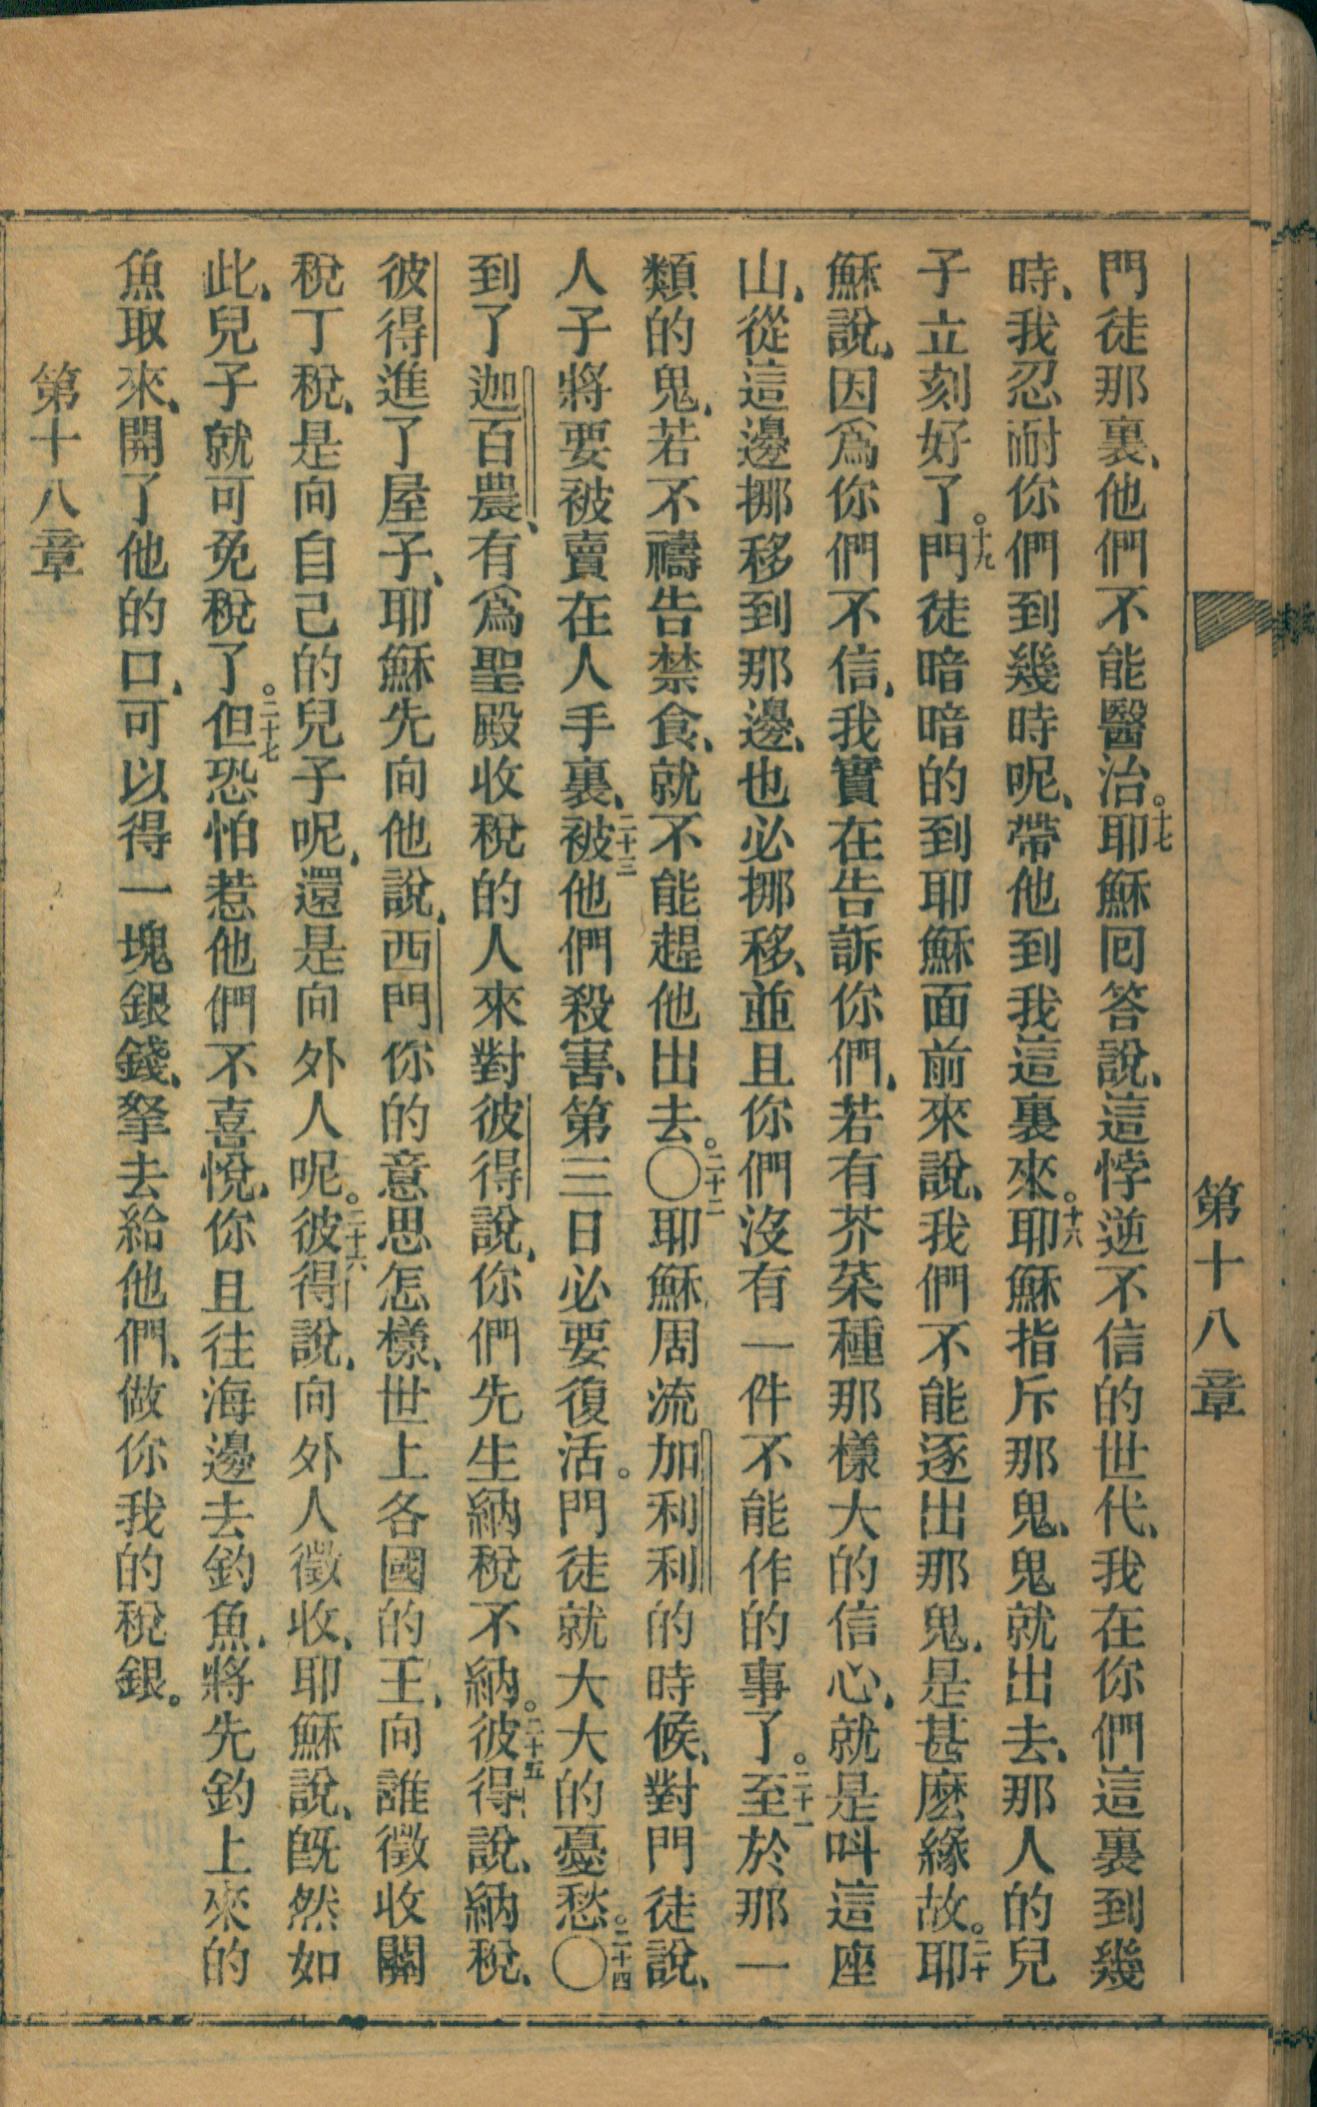 第十八章
門徒那裏、他們不能醫治。十七耶穌囘答說、這悖逆不信的世代、我在你們這裏到幾
時、我忍耐你們到幾時呢、帶他到我這裏來。十八耶穌指斥那鬼、鬼就出去、那人的兒
子立刻好了。十九門徒暗暗的到耶穌面前來說、我們不能逐出那鬼、是甚麽緣故。二十耶
穌說、因爲你們不信、我實在告訴你們、若有芥菜種那樣大的信心、就是呌這座
山、從這邊挪移到那邊、也必挪移、並且你們沒有一件不能作的事了。二十一至於那一
類的鬼、若不禱告禁食、就不能趕他出去。〇二十二耶穌周流加利利的時候、對門徒說、
人子將要被賣在人手裏、二十三被他們殺害、第三日必要復活。門徒就大大的憂愁。〇二十四
到了迦百農、有爲聖殿收稅的人來對彼得說、你們先生納稅不納。二十五彼得說、納稅、
彼得進了屋子、耶穌先向他說、西門你的意思怎樣、世上各國的王、向誰徵收關
稅丁稅、是向自己的兒子呢、還是向外人呢。二十六彼得說、向外人徵收、耶穌說、旣然如
此、兒子就可免稅了。二十七但恐怕惹他們不喜悅、你且往海邊去釣魚、將先釣上來的
魚取來、開了他的口、可以得一塊銀錢、拏去給他們、做你我的稅銀。
第十八章